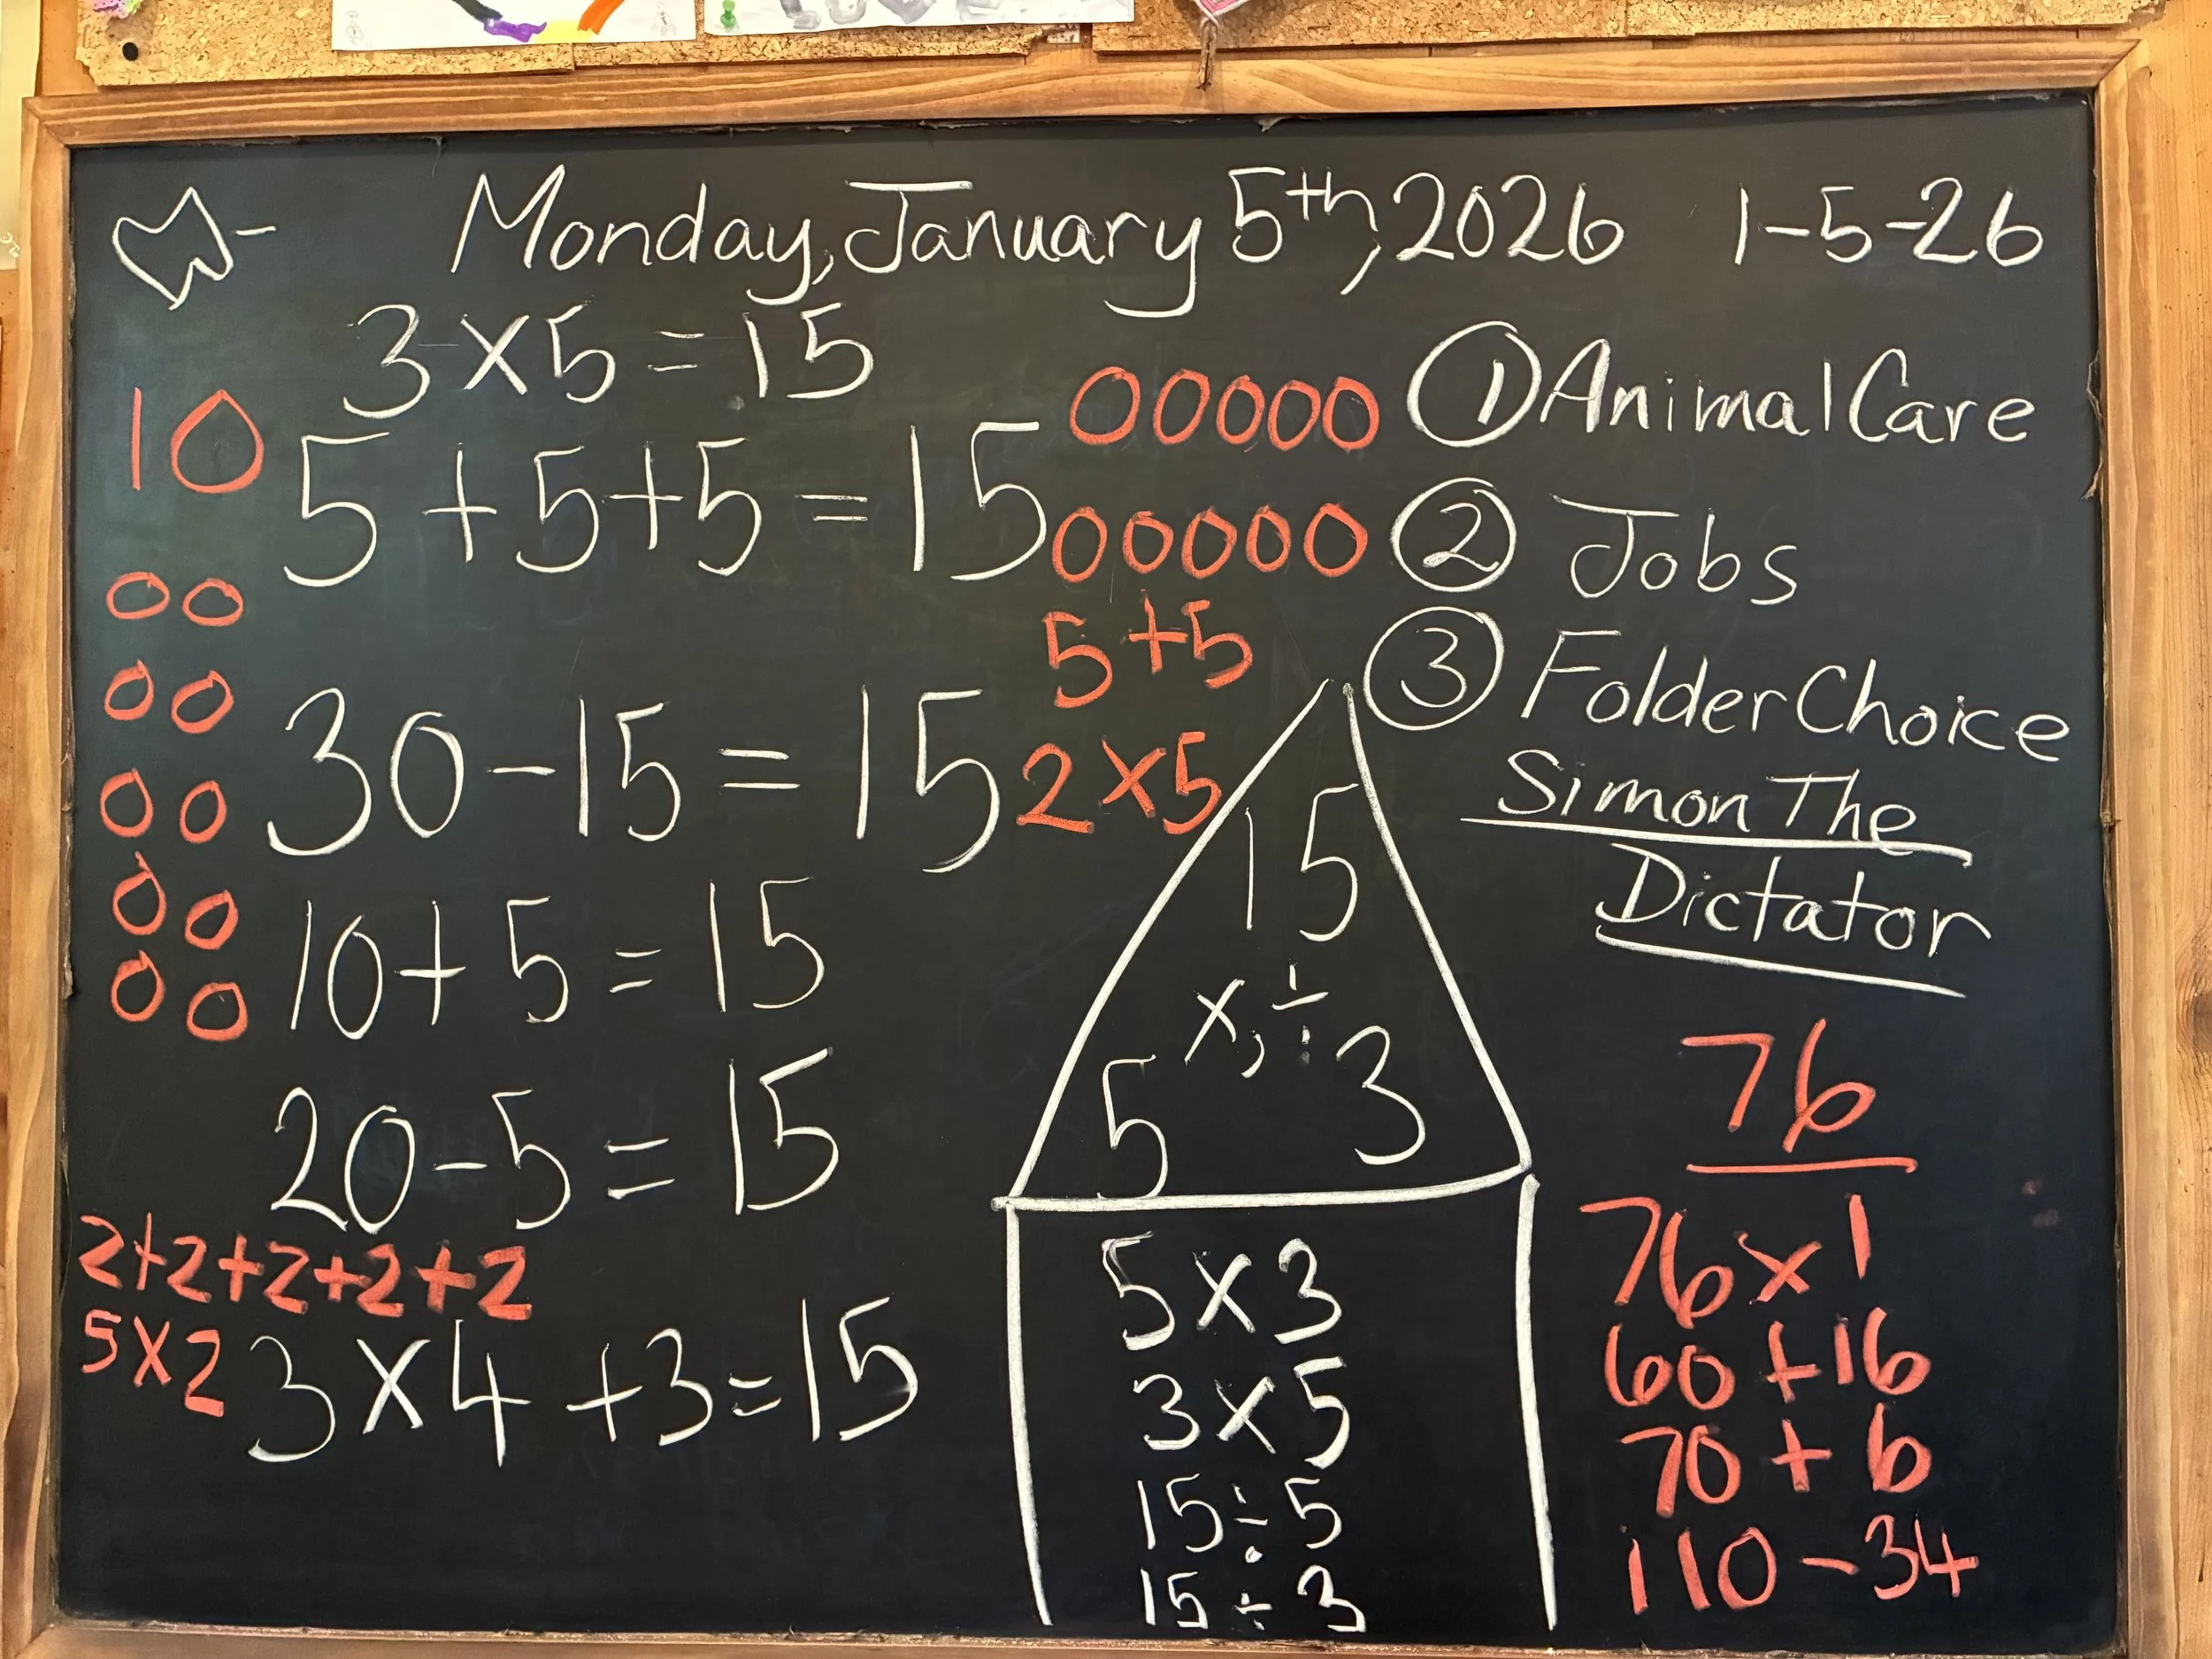 Monday, January 5th, 2026 1-5-26
3 x 5 = 15
10
5 + 5 + 5 = 15
30 - 15 = 15
10 + 5 = 15
20 - 5 = 15
2+2+2+2+2
5 x 2
3 x 4 + 3 = 15
00000
00000
5 + 5
2 x 5
15
x, ÷
5 3
5 x 3
3 x 5
15 ÷ 5
15 ÷ 3
① Animal Care
② Jobs
③ Folder Choice
Simon The
Dictator
76
76 x 1
60 + 16
70 + 6
110 - 34